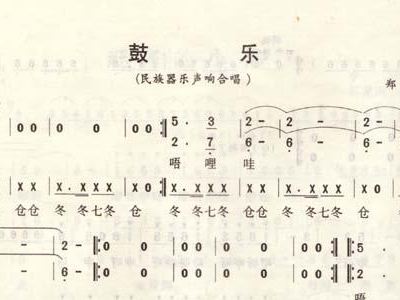 鼓 乐
(民族器乐声响合唱)
郑
| 0 0 | 0 0 | 0 0 :‖ 5 . 3 | 2 - | 2 - | 2
2 . 7 | 6 - | 6 - | 6
唔 哩 哇
x x | x . x x x | x x :‖ x . x x x | x x | x . x x x | x x
仓仓 冬 冬七冬 仓 冬 冬七冬 仓仓 冬 冬七冬 仓
- | 2 - ‖: 0 0 | 0 0 | 0 0 | 0 0 :‖ 5 .
- | 6 - ‖: 0 0 | 0 0 | 0 0 | 0 0 :‖ 2 .
唔